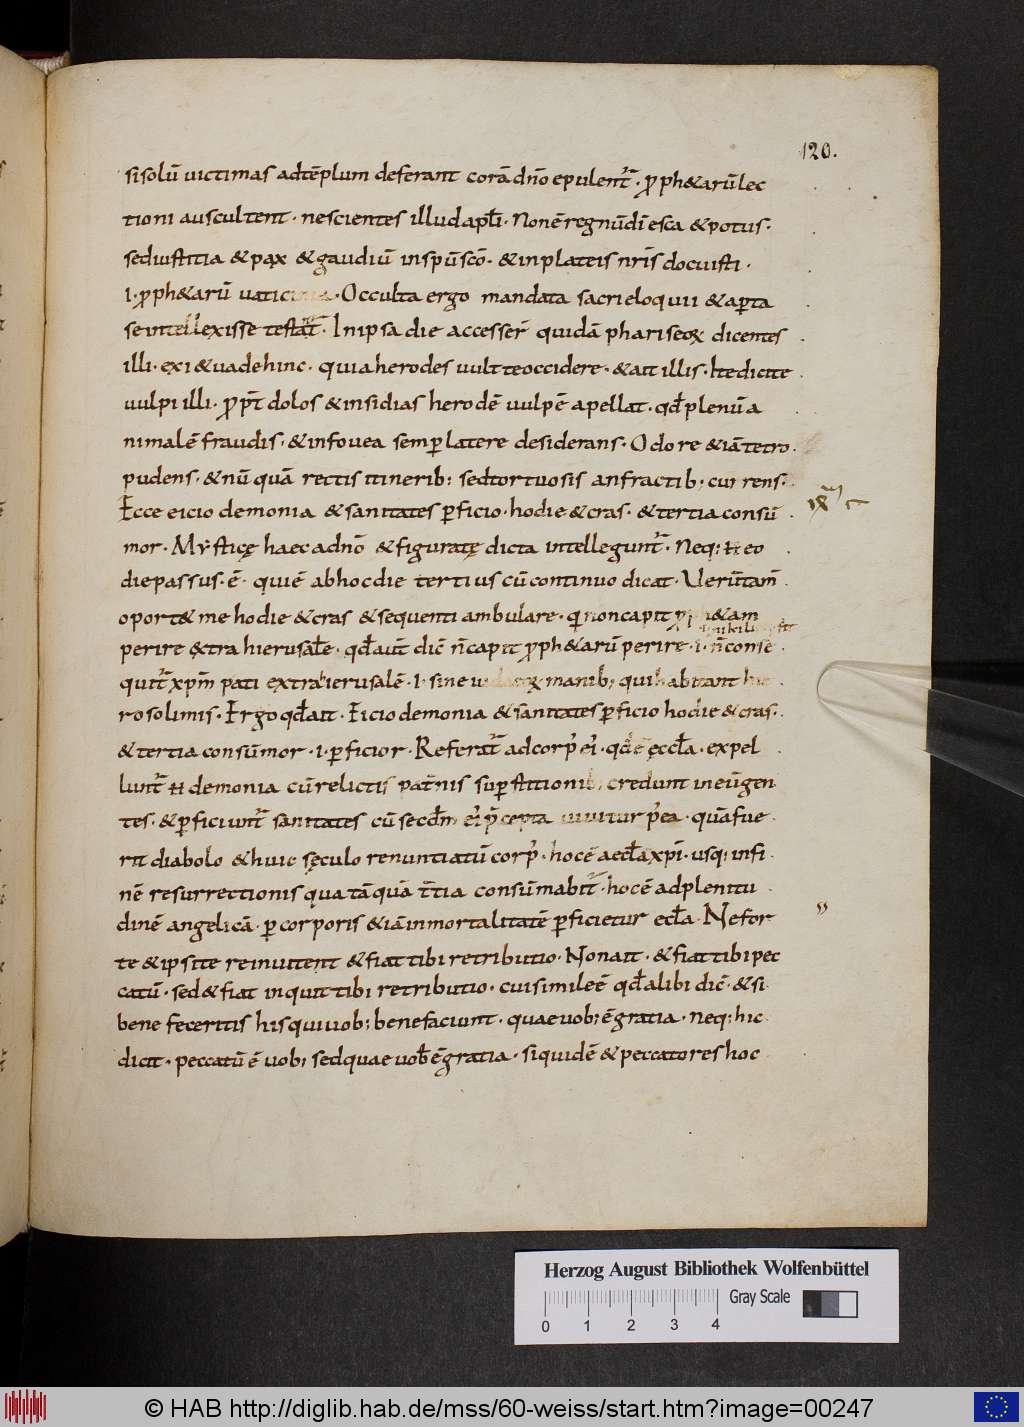 120.
si solū uictimas ad tēplum deferant corā dn̄o epulent᷑. p̄ph&arū lec
tioni auscultent. nescientes illud apl̄i. Non ē regnū dī esca & potus.
sed iustitia & pax & gaudiū in sp̄u sc̄o. & in plateis nr̄is docuisti.
i. p̄ph&arū Occulta ergo mandata sacri eloquii & aperta
se intellexisse testant᷑. In ipsa die accesser̄ quidā phariseoꝝ dicentes
illi. exi & uade hinc. quia herodes uult te occidere. & ait illis. Ite dicite
uulpi illi. ꝓpt̄ dolos & insidias herodē uulpē apellat. qd̄ plenū a
nimalē fraudis. & in fouea semꝑ latere desiderans. Odore & iā tetro
pudens. & nūquā rectis itinerib; sed tortuosis anfractib; currens.
Ecce eicio demonia & sanitates ꝑficio. hodie & cras. & tertia consū
mor. Mysticę haec a dn̄o & figuratę dicta intellegunt᷑. Neq; n̄ eo
die passus. ē. qui ē ab hoc die tertius cū continuo dicat. Uerūtam̄
oport& me hodie & cras & sequenti ambulare. q̄ non capit p̄ph&am
perire extra hierusalē. qd̄ aut̄ dic̄ n̄ capit p̄ph&arū perire. i. n̄ conue
quit᷑ xp̄m pati extra ierusalē. i. sine manib; qui habitant hie
rosolimis. Ergo qd̄ ait. Eicio demonia & sanitates ꝑficio hodie & cras.
& tertia consūmor. i. ꝑficior. Referat᷑ ad corp᷒ ei᷒. qd̄ ē ęccl̄a. expel
lunt᷑ n̄ demonia cū relictis pat̄nis suꝑstitionib; credunt in eū gen
tes. & ꝑficiunt᷑ sanitates cū secd̄m ei᷒ p̄cepta uiuitur p̄ ea. quā fue
rit diabolo & huic sęculo renuntiatū corp᷒. hoc ē aecl̄a xp̄i. usq; in fi
nē resurrectionis qua tāquā t̄tia consūmabit᷑. hoc ē ad plenitu
dinē angelicā. ꝑ corporis & iā inmortalitatē ꝑficietur ecl̄a. Ne for
te & ipsi te reinuitent & fiat tibi retributio. Non ait. & fiat tibi pec
catū. sed & fiat inquit tibi retributio. cui simile ē qd̄ alibi dic̄. & si
bene feceritis his qui uob; benefaciunt. quae uob; ē gratia. neq; hic
dicit. peccatū ē uob; sed quae uob̄ ē gratia. siquidē & peccatores hoc
Herzog August Bibliothek Wolfenbüttel
Gray Scale
0 1 2 3 4
© HAB http://diglib.hab.de/mss/60-weiss/start.htm?image=00247